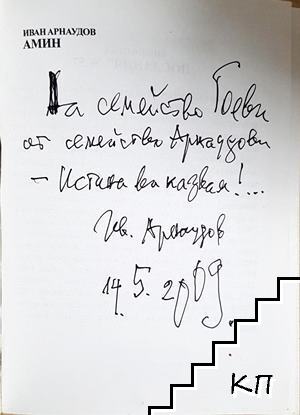 ИВАН АРНАУДОВ
АМИН
На семейство Гоеви
от семейство Арнаудови
– Истина ви казвам!...
Ив. Арнаудов
14.5.2009.
КП